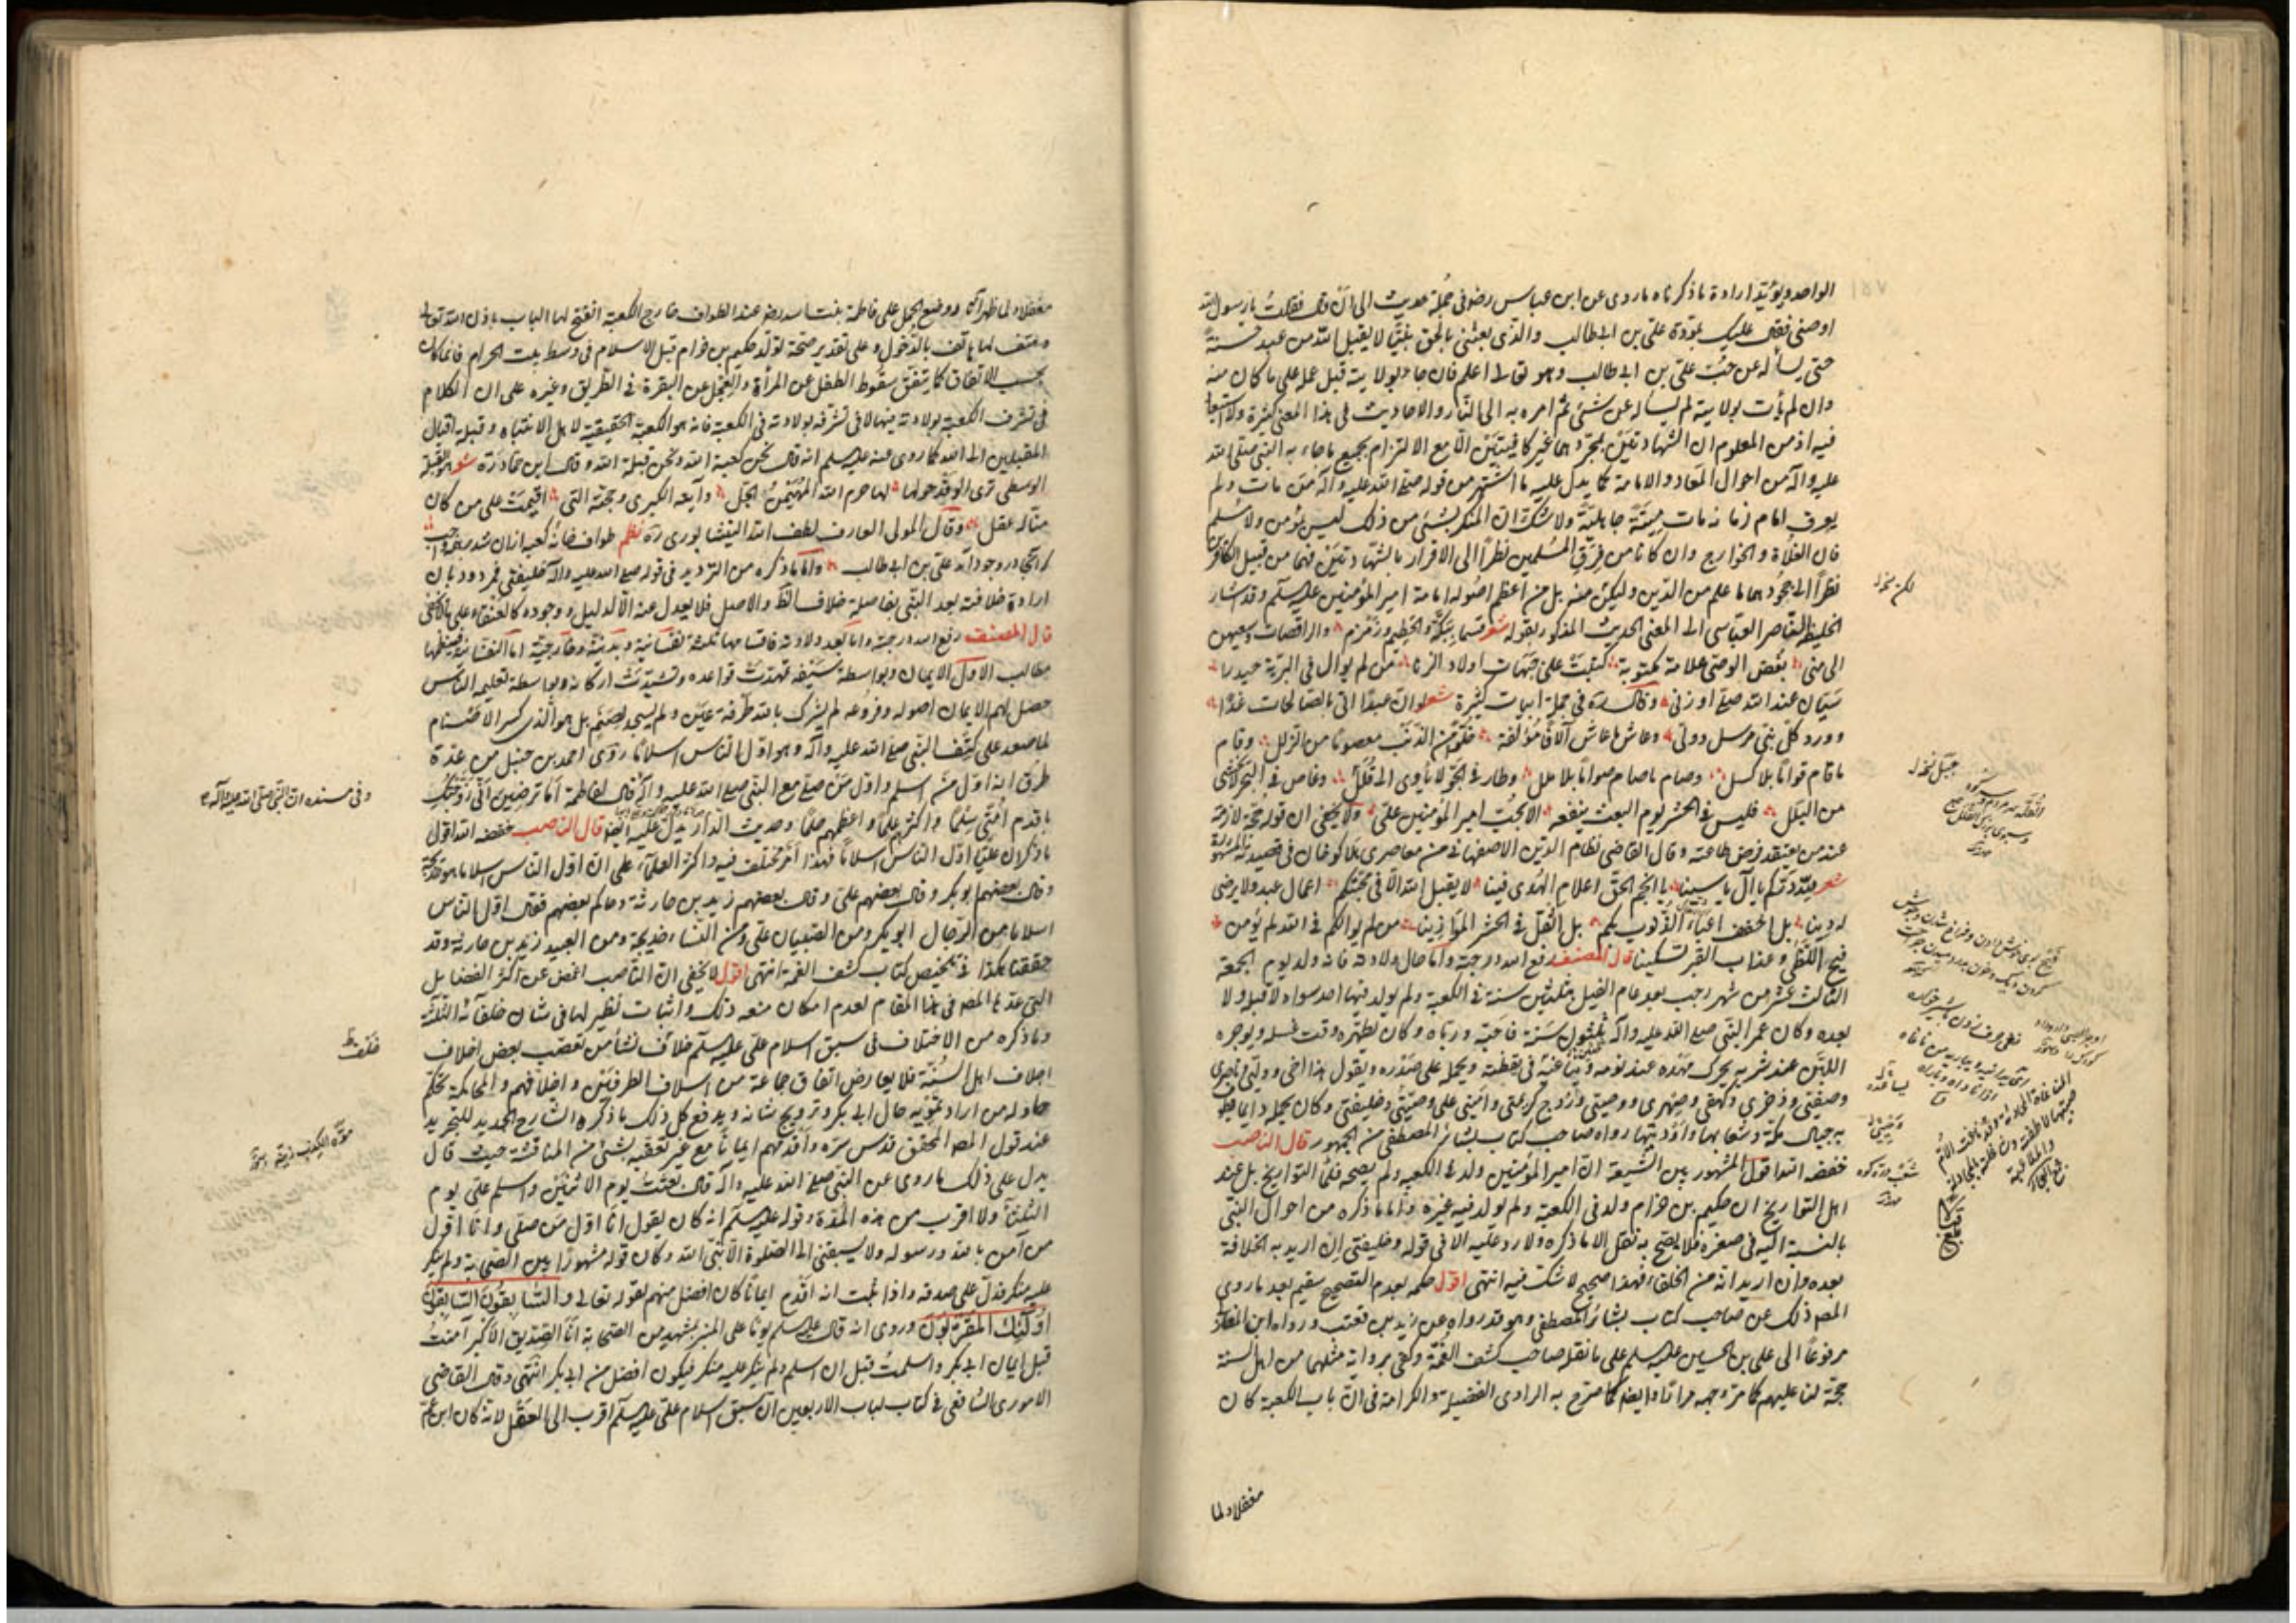 الواحد ويؤيد ارادة ما ذكرناه ما روى عن ابن عباس رضو فى جملة حديث الى ان قال فقلت يا رسول الله
اوصنى فقال عليك بمودة على بن ابى طالب والذى بعثنى بالحق نبيّا لا يقبل الله من عبد حسنة
حتى يسأله عن حبّ على بن ابى طالب وهو تعالى اعلم فان جاء بولايته قبل عمله على ما كان منه
وان لم يأت بولايته لم يسأله عن شئ ثم امر به الى النار والاحاديث فى هذا المعنى كثيرة ولا استبعاد
فيه اذ من المعلوم ان الشهادتين بمجردهما غير كافيتين الّا مع الالتزام بجميع ما جاء به النبى صلى الله
عليه وآله من احوال المعاد والامامة كما يدل عليه ما اشتهر من قوله صلى الله عليه وآله من مات ولم
يعرف امام زمانه مات ميتة جاهلية ولا شك ان المنكر بشئ من ذلك ليس بمؤمن ولا مسلم
فان الغلاة والخوارج وان كانا من فرق المسلمين نظرا الى الاقرار بالشهادتين فهما من قبيل الكافرين
نظرا الى جحودهما ما علم من الدين وليكن منه بل من اعظم اصوله امامة امير المؤمنين عليه سلم وقد اشار
الخليفة الناصر العباسى الى المعنى الحديث المذكور بقوله شعر قسما ببكة والحطيم وزمزم والراقصات وسعيهن
الى منى بغض الوصى علامة مكتوبة كتبت على جبهات اولاد الزنا من لم يوال فى البرية حيدرا
سيّان عند الله صلى او زنى وقال ره فى جملة ابيات كثيرة شعر لو ان عبدا اتى بالصالحات غدا
وورد كل نبى مرسل وولى وعاش ما عاش آلافا مؤلفة خلوا من الذنب معصوما من الزلل وقام
ما قام قواما بلا كسل وصام ما صام صواما بلا ملل وطار فى الجو لا يأوى الى قلل وغاص فى البحر لا يخشى
من البلل فليس فى الحشر يوم البعث ينفعه الا بحب امير المؤمنين على ولا يخفى ان قوله حجة لازمة
عند من يعتقد فرض طاعته وقال القاضى نظام الدين الاصفهانى من معاصرى هلاكو خان فى قصيدته المشهورة
شعر لله درّكم يا آل ياسينا يا انجم الحق اعلام الهدى فينا لا يقبل الله الّا فى محبتكم اعمال عبد ولا يرضى
له دينا بل اخفف اعباء الذنوب بكم بل اثقل فى الحشر الموازينا من لم يوالكم فى الله لم يؤمن
فيح اللظى وعذاب القبر تسكينا قال المصنف رفع الله درجته واما حال ولادته فانه ولد يوم الجمعة
الثالث عشر من شهر رجب بعد عام الفيل بثلثين سنة فى الكعبة ولم يولد فيها احد سواه لا قبله ولا
بعده وكان عمر النبى صلى الله عليه وآله ثلثون سنة فاحبّه ورباه وكان يطهره وقت غسله ويوجره
اللبن عند شربه يحرك مهده عند نومه ويناغيه فى يقظته ويحمله على صدره ويقول هذا اخى وولى وناصرى
وصفيى وذخرى وكهفى وصهرى ووصيى وزوج كريمتى وامينى على وصيتى وخليفتى وكان يحمله دايما ويطوف
به جبال مكة وشعابها واوديتها رواه صاحب كتاب بشائر المصطفى من الجمهور قال الناصب
خفضه الله اقول المشهور بين الشيعة ان امير المؤمنين ولد فى الكعبة ولم يصححه علماء التواريخ بل عند
اهل التواريخ ان حكيم بن حزام ولد فى الكعبة ولم يولد فيه غيره واما ما ذكره من احوال النبى
بالنسبة اليه فى صغره فلا يصح به نقل الا ما ذكره ولا رد عليه الا فى قوله وخليفتى ان اريد به الخلافة
بعده وان اريد انه من الخلفاء فهذا صحيح لا شك فيه انتهى اقول حكمه بعدم التصحيح سقيم بعد ما روى
المص ذلك عن صاحب كتاب بشائر المصطفى وهو قد رواه عن زيد بن قعنب ورواه ابن المغازلى
مرفوعا الى على بن الحسين عليه سلم على ما نقله صاحب كشف الغمة وكفى برواية مثلهما من اهل السنة
حجة لنا عليهم كما مر وجهه مرارا وايضا كما صرح به الراوى الفضيلة والكرامة فى ان باب الكعبة كان
مغفلا ولما
مغفلا ولما ظهر آثار ووضع الحمل على فاطمة بنت اسد رضى عند الطواف خارج الكعبة انفتح لها الباب باذن الله تعالى
وهتف لها هاتف بالدخول وعلى تقدير صحة تولد حكيم بن حزام قبل الاسلام فى وسط بيت الحرام فانما كان
بحسب الاتفاق كما يتفق سقوط الطفل عن المرأة والعجل عن البقرة فى الطريق وغيره على ان الكلام
فى تشرف الكعبة بولادته فيها لا فى تشرفه بولادته فى الكعبة فانه هو الكعبة الحقيقية لاهل الانتباه وقبلة اقبال
المقبلين الى الله كما روى عنه عليه سلم انه قال نحن كعبة الله ونحن قبلة الله وقال ابن حماد ره شعر هو القبلة
الوسطى ترى الوفد حولها لها حرم الله المهيمن والحل وآيته الكبرى وحجته التى اقيمت على من كان
منا له عقل وقال المولى العارف لطف الله النيشابورى ره نظم طواف خانه كعبه ازان شد بر همه واجب
كه آنجا در وجود آمد على بن ابى طالب واما ما ذكره من الترديد فى قوله صلى الله عليه وآله خليفتى فمردود بان
ارادة خلافته بعد النبى بفاصلة خلاف الظ والاصل فلا يعدل عنه الا لدليل ووجوده كالعنقاء على ما لا يخفى
قال المصنف رفع الله درجته واما بعد ولادته فاقسامها ثلثة نفسانية وبدنية وخارجية اما النفسانية فينظمها
مطالب الاول الايمان وبواسطة سيفه تمهدت قواعده وتشيدت اركانه وبواسطة تعليمه الناس
حصل لهم الايمان اصوله وفروعه لم يشرك بالله طرفة عين ولم يسجد لصنم بل هو الذى كسر الاصنام
لما صعد على كتف النبى صلى الله عليه وآله وهو اول الناس اسلاما روى احمد بن حنبل من عدة
طرق انه اول من اسلم واول من صلى مع النبى صلى الله عليه وآله قال لفاطمة اما ترضين انى زوجتك
باقدم امتى سلما واكثرهم علما واعظمهم حلما وحديث الدار يدل عليه ايضا قال الناصب خفضه الله اقول
ما ذكر ان عليا اول الناس اسلاما فهذا امر مختلف فيه واكثر العلماء على ان اول الناس اسلاما هو خديجة
وقال بعضهم ابو بكر وقال بعضهم على وقال بعضهم زيد بن حارثة وحاكم بعضهم فقال اول الناس
اسلاما من الرجال ابو بكر ومن الصبيان على ومن النساء خديجة ومن العبيد زيد بن حارثة وقد
حققنا هكذا فى تلخيص كتاب كشف الغمة انتهى اقول لا يخفى ان الناصب اغمض عن اكثر الفضايل
التى عدها المص فى هذا المقام لعدم امكان منعه ذلك واثبات نظير لها فى شان خلفائه الثلثة
وما ذكره من الاختلاف فى سبق اسلام على عليه سلم خلاف نشأ من تعصب بعض اخلاف
اجلاف اهل السنة فلا يعارض اتفاق جماعة من اسلاف الطرفين واخلافهم والمحاكمة تحكم
حاوله من اراد تمويه حال ابى بكر وترويج شانه ويدفع كل ذلك ما ذكره الشارح الجديد للتجريد
عند قول المص المحقق قدس سره واقدمهم ايمانا مع غير تعقبه بشئ من المناقشة حيث قال
يدل على ذلك ما روى عن النبى صلى الله عليه وآله قال بعثت يوم الاثنين واسلم على يوم
الثلثاء ولا اقرب من هذه المدة وقوله عليه سلم انه كان يقول انا اول من صلى وانا اول
من آمن بالله ورسوله ولا يسبقنى الى الصلوة الا نبى الله وكان قوله مشهورا بين الصحابة ولم ينكر
عليه منكر فدل على صدقه واذا ثبت انه اقدم ايمانا كان افضل منهم لقوله تعالى والسابقون السابقون
اولئك المقربون وروى انه قال عليه سلم يوما على المنبر بمشهد من الصحابة انا الصديق الاكبر آمنت
قبل ايمان ابى بكر واسلمت قبل ان اسلم ولم ينكر عليه منكر فيكون افضل من ابى بكر انتهى وقال القاضى
الاموى الشافعى فى كتاب لباب الاربعين ان سبق اسلام على عليه سلم اقرب الى العقل لانه كان ابن عم
وفى مسنده ان النبى صلى الله عليه وآله